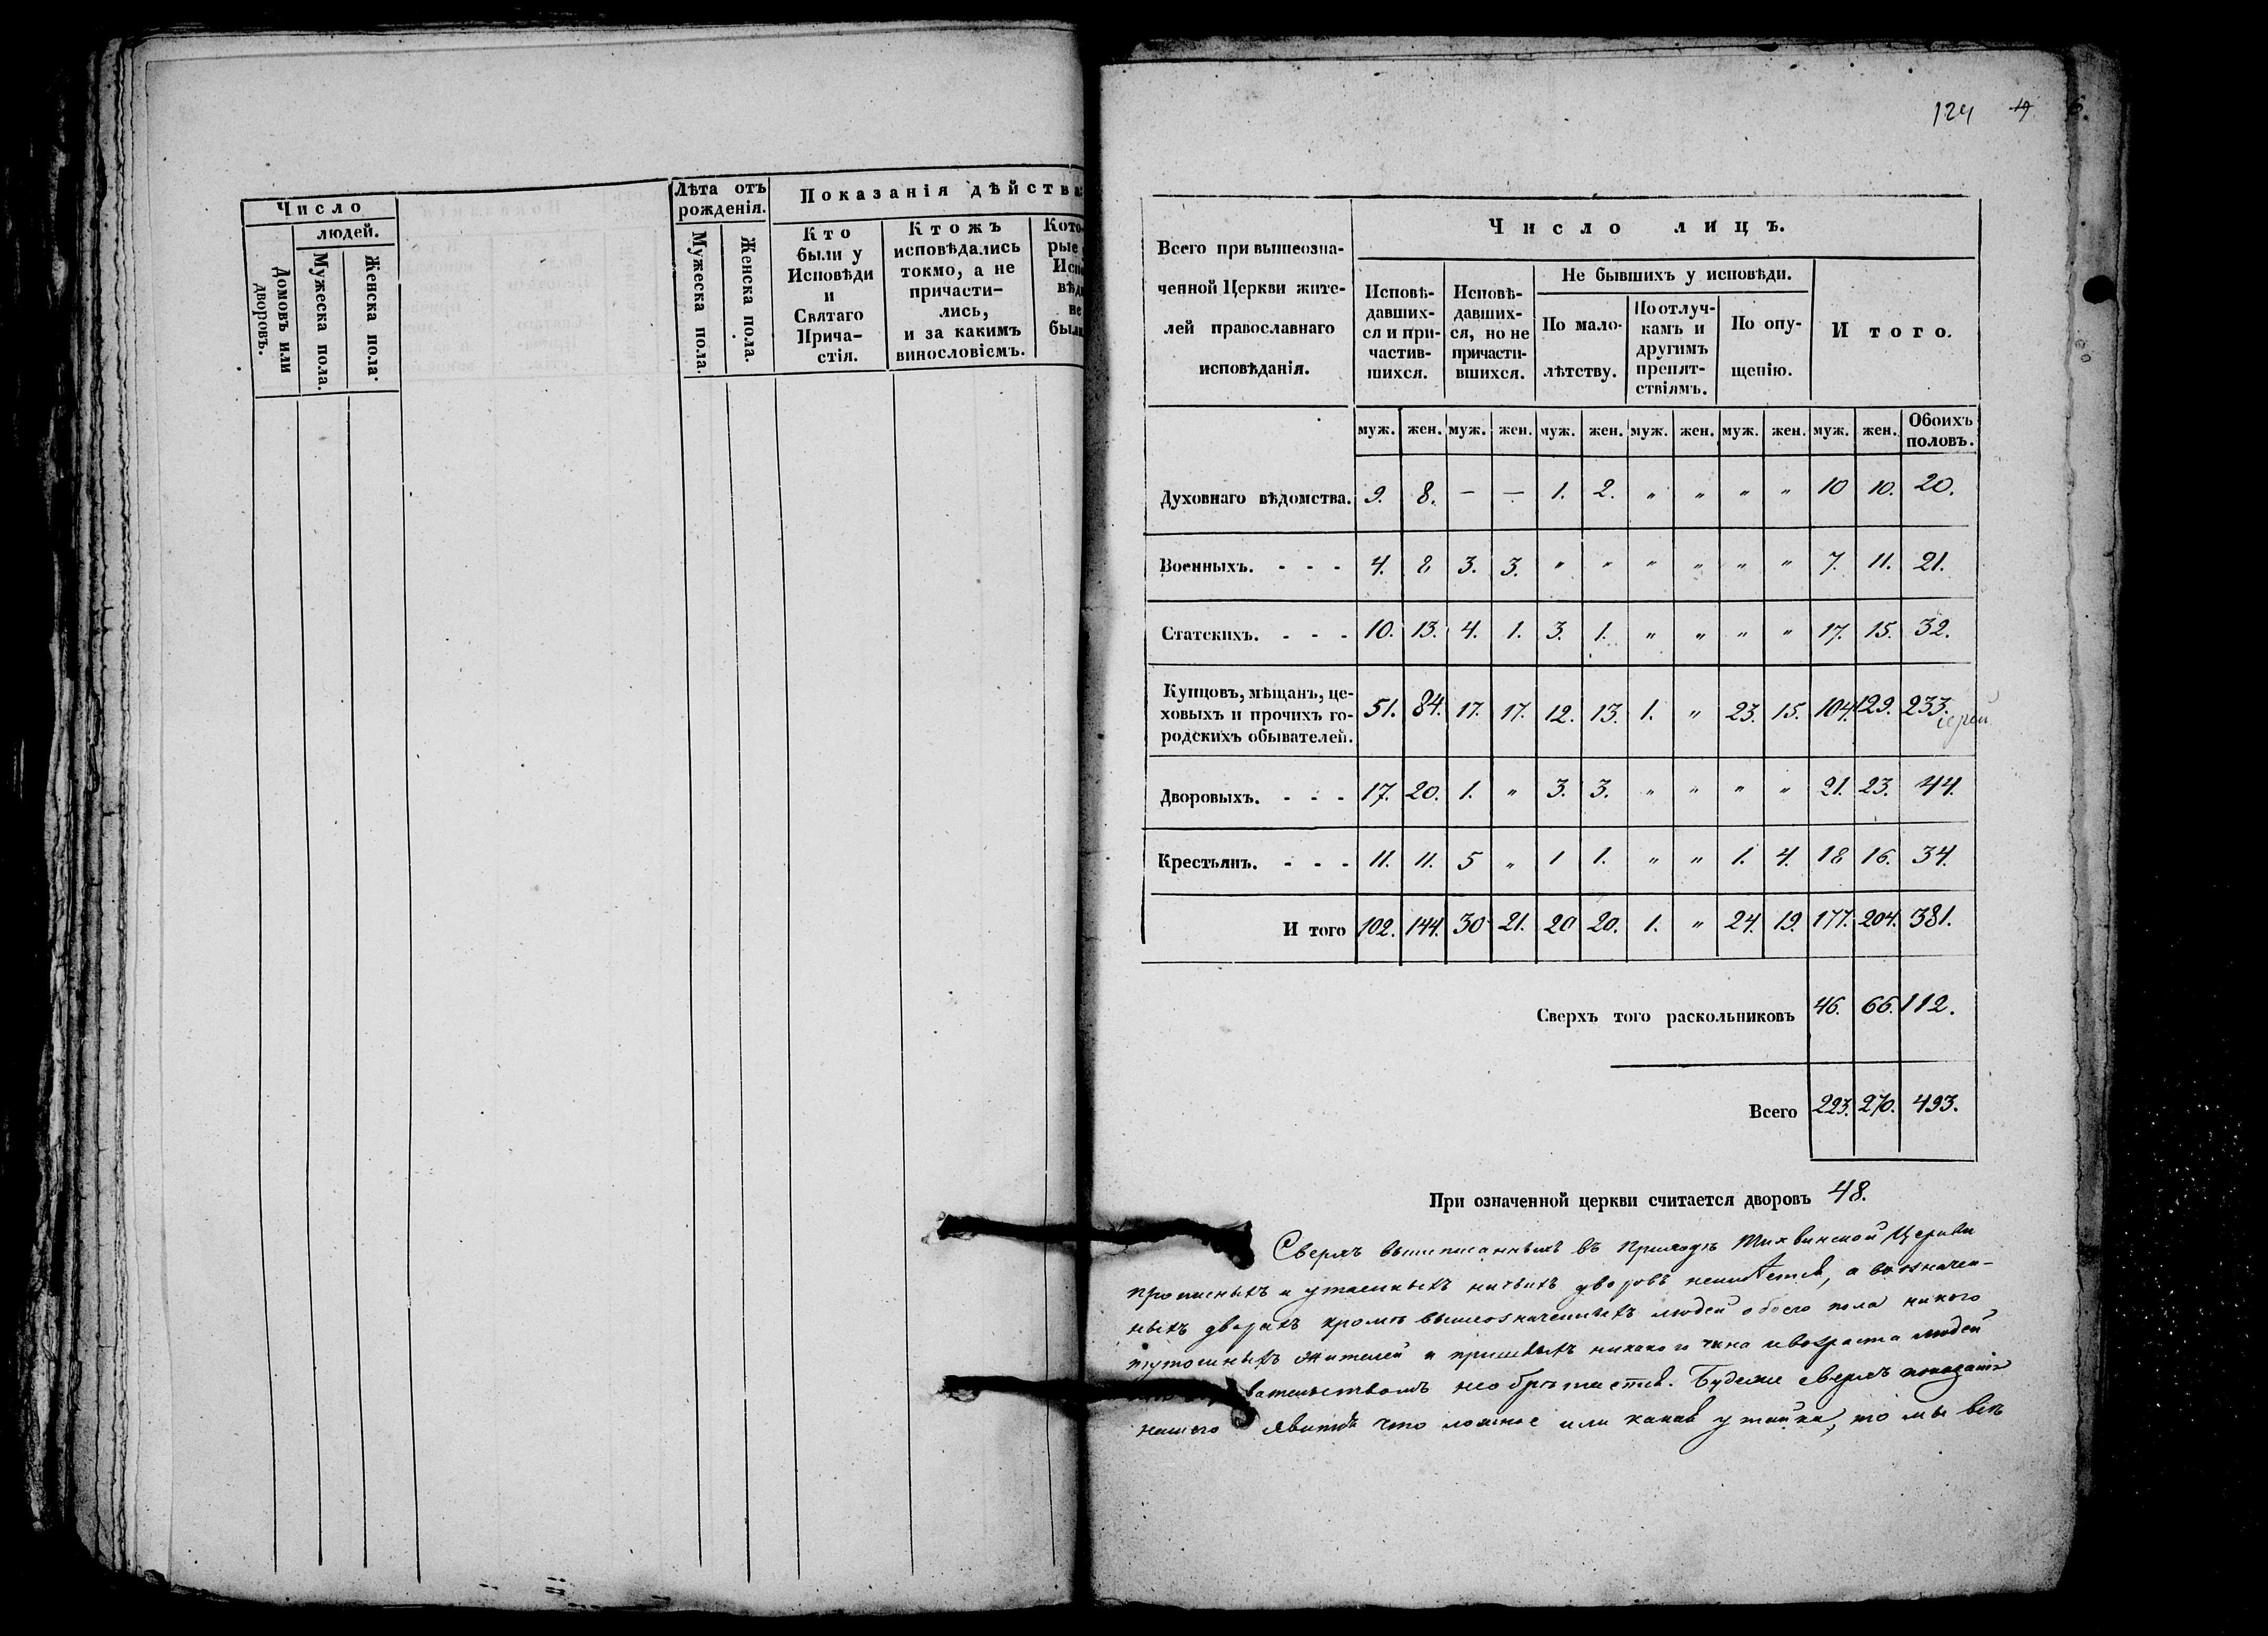 Число
людей.
Домовъ или дворовъ.
Мужеска пола.
Женска пола.
Лѣта отъ
рожденія.
Мужеска пола.
Женска пола.
Показанія дѣйства
Кто
были у
Исповѣди
и
Святаго
Прича-
стія.
Ктожъ
исповѣдались
токмо, а не
причасти-
лись,
и за какимъ
винословіемъ.
Кото-
рые
Испо
вѣди
не
были
124 4 6.
Всего при вышеозна-
ченной Церкви жите-
лей православнаго
исповѣданія.
Число лицъ.
Исповѣ-
давших-
ся и при-
частив-
шихся.
Исповѣ-
давших-
ся, но не
причасти-
вшихся.
Не бывшихъ у исповѣди.
По мало-
лѣтству.
По отлуч-
камъ и
другимъ
препят-
ствіямъ.
По опу-
щенію.
Итого.
муж. жен. муж. жен. муж. жен. муж. жен. муж. жен. муж. жен. Обоихъ половъ.
Духовнаго вѣдомства. 9. 8. — — 1. 2. " " " " 10 10. 20.
Военныхъ. - - - 4. 8 3. 3. " " " " " " 7. 11. 21.
Статскихъ. - - - 10. 13. 4. 1. 3. 1. " " " " 17. 15. 32.
Купцовъ, мѣщанъ, це-
ховыхъ и прочихъ го-
родскихъ обывателей. 51. 84. 17. 17. 12. 13. 1. " 23. 15. 104. 129. 233.
іерей
Дворовыхъ. - - - 17. 20. 1. " 3. 3. " " " " 21. 23. 44.
Крестьянъ. - - - 11. 11. 5 " 1 1. " " 1. 4. 18 16. 34.
И того 102. 144. 30 21. 20 20. 1. " 24. 19. 177. 204. 381.
Сверхъ того раскольниковъ 46. 66. 112.
Всего 223. 270. 493.
При означенной церкви считается дворовъ 48.
Сверхъ вышеписанныхъ въ приходѣ Тихвинской Церкви
прописныхъ и утаенныхъ ничьихъ дворовъ неимѣется, а въ означен-
ныхъ дворахъ кромѣ вышеозначенныхъ людей обоего пола никого
тутошныхъ жителей и пришлыхъ никакого чина и возраста людей
вательствомъ необрѣтается. Будеже сверхъ показанія
нашего явится что ложное или какая утайка, то мы всѣ